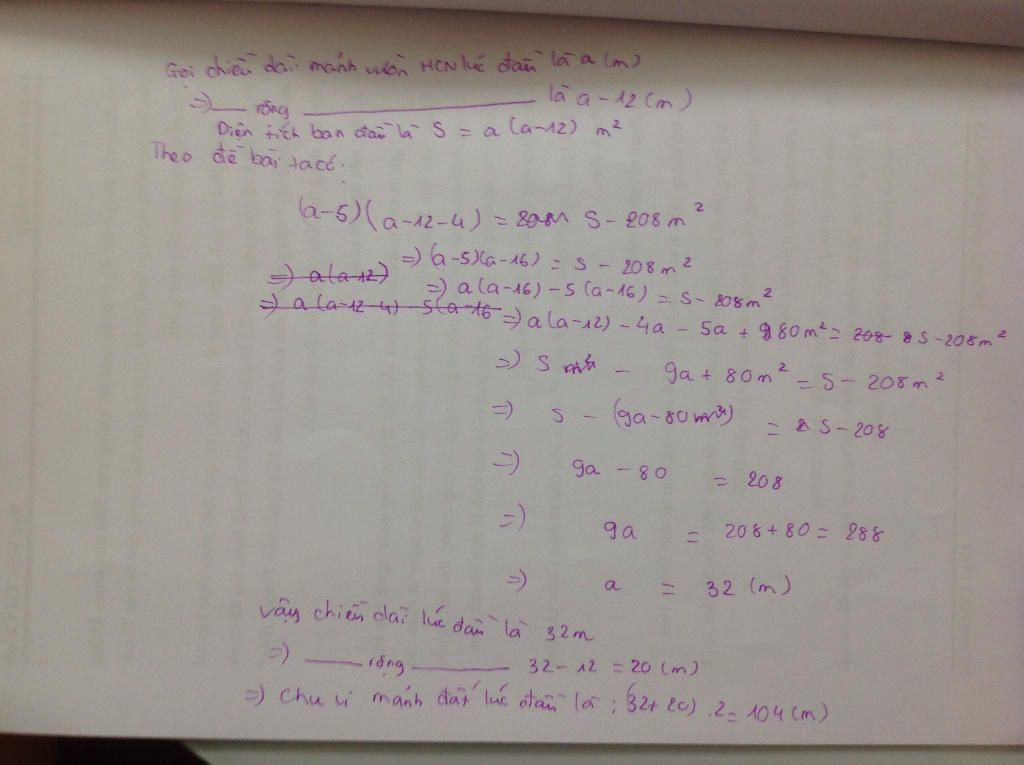 Gọi chiều dài mảnh vườn HCN lúc đầu là a (m)
=> — rộng — là a - 12 (m)
Diện tích ban đầu là S = a (a-12) m²
Theo đề bài ta có:
(a-5)(a-12-4) = S - 208m²
=> (a-5)(a-16) = S - 208m²
=> a(a-12)
=> a(a-16) - 5(a-16) = S - 208m²
=> a(a-12-4) - 5(a-16
=> a(a-12) - 4a - 5a + 80m² = S - 208m²
=> S - 9a + 80m² = S - 208m²
=> S - (9a - 80m²) = S - 208
=> 9a - 80 = 208
=> 9a = 208 + 80 = 288
=> a = 32 (m)
Vậy chiều dài lúc đầu là 32m
=> — rộng — 32 - 12 = 20 (m)
=> Chu vi mảnh đất lúc đầu là : (32+20) .2 = 104 (m)